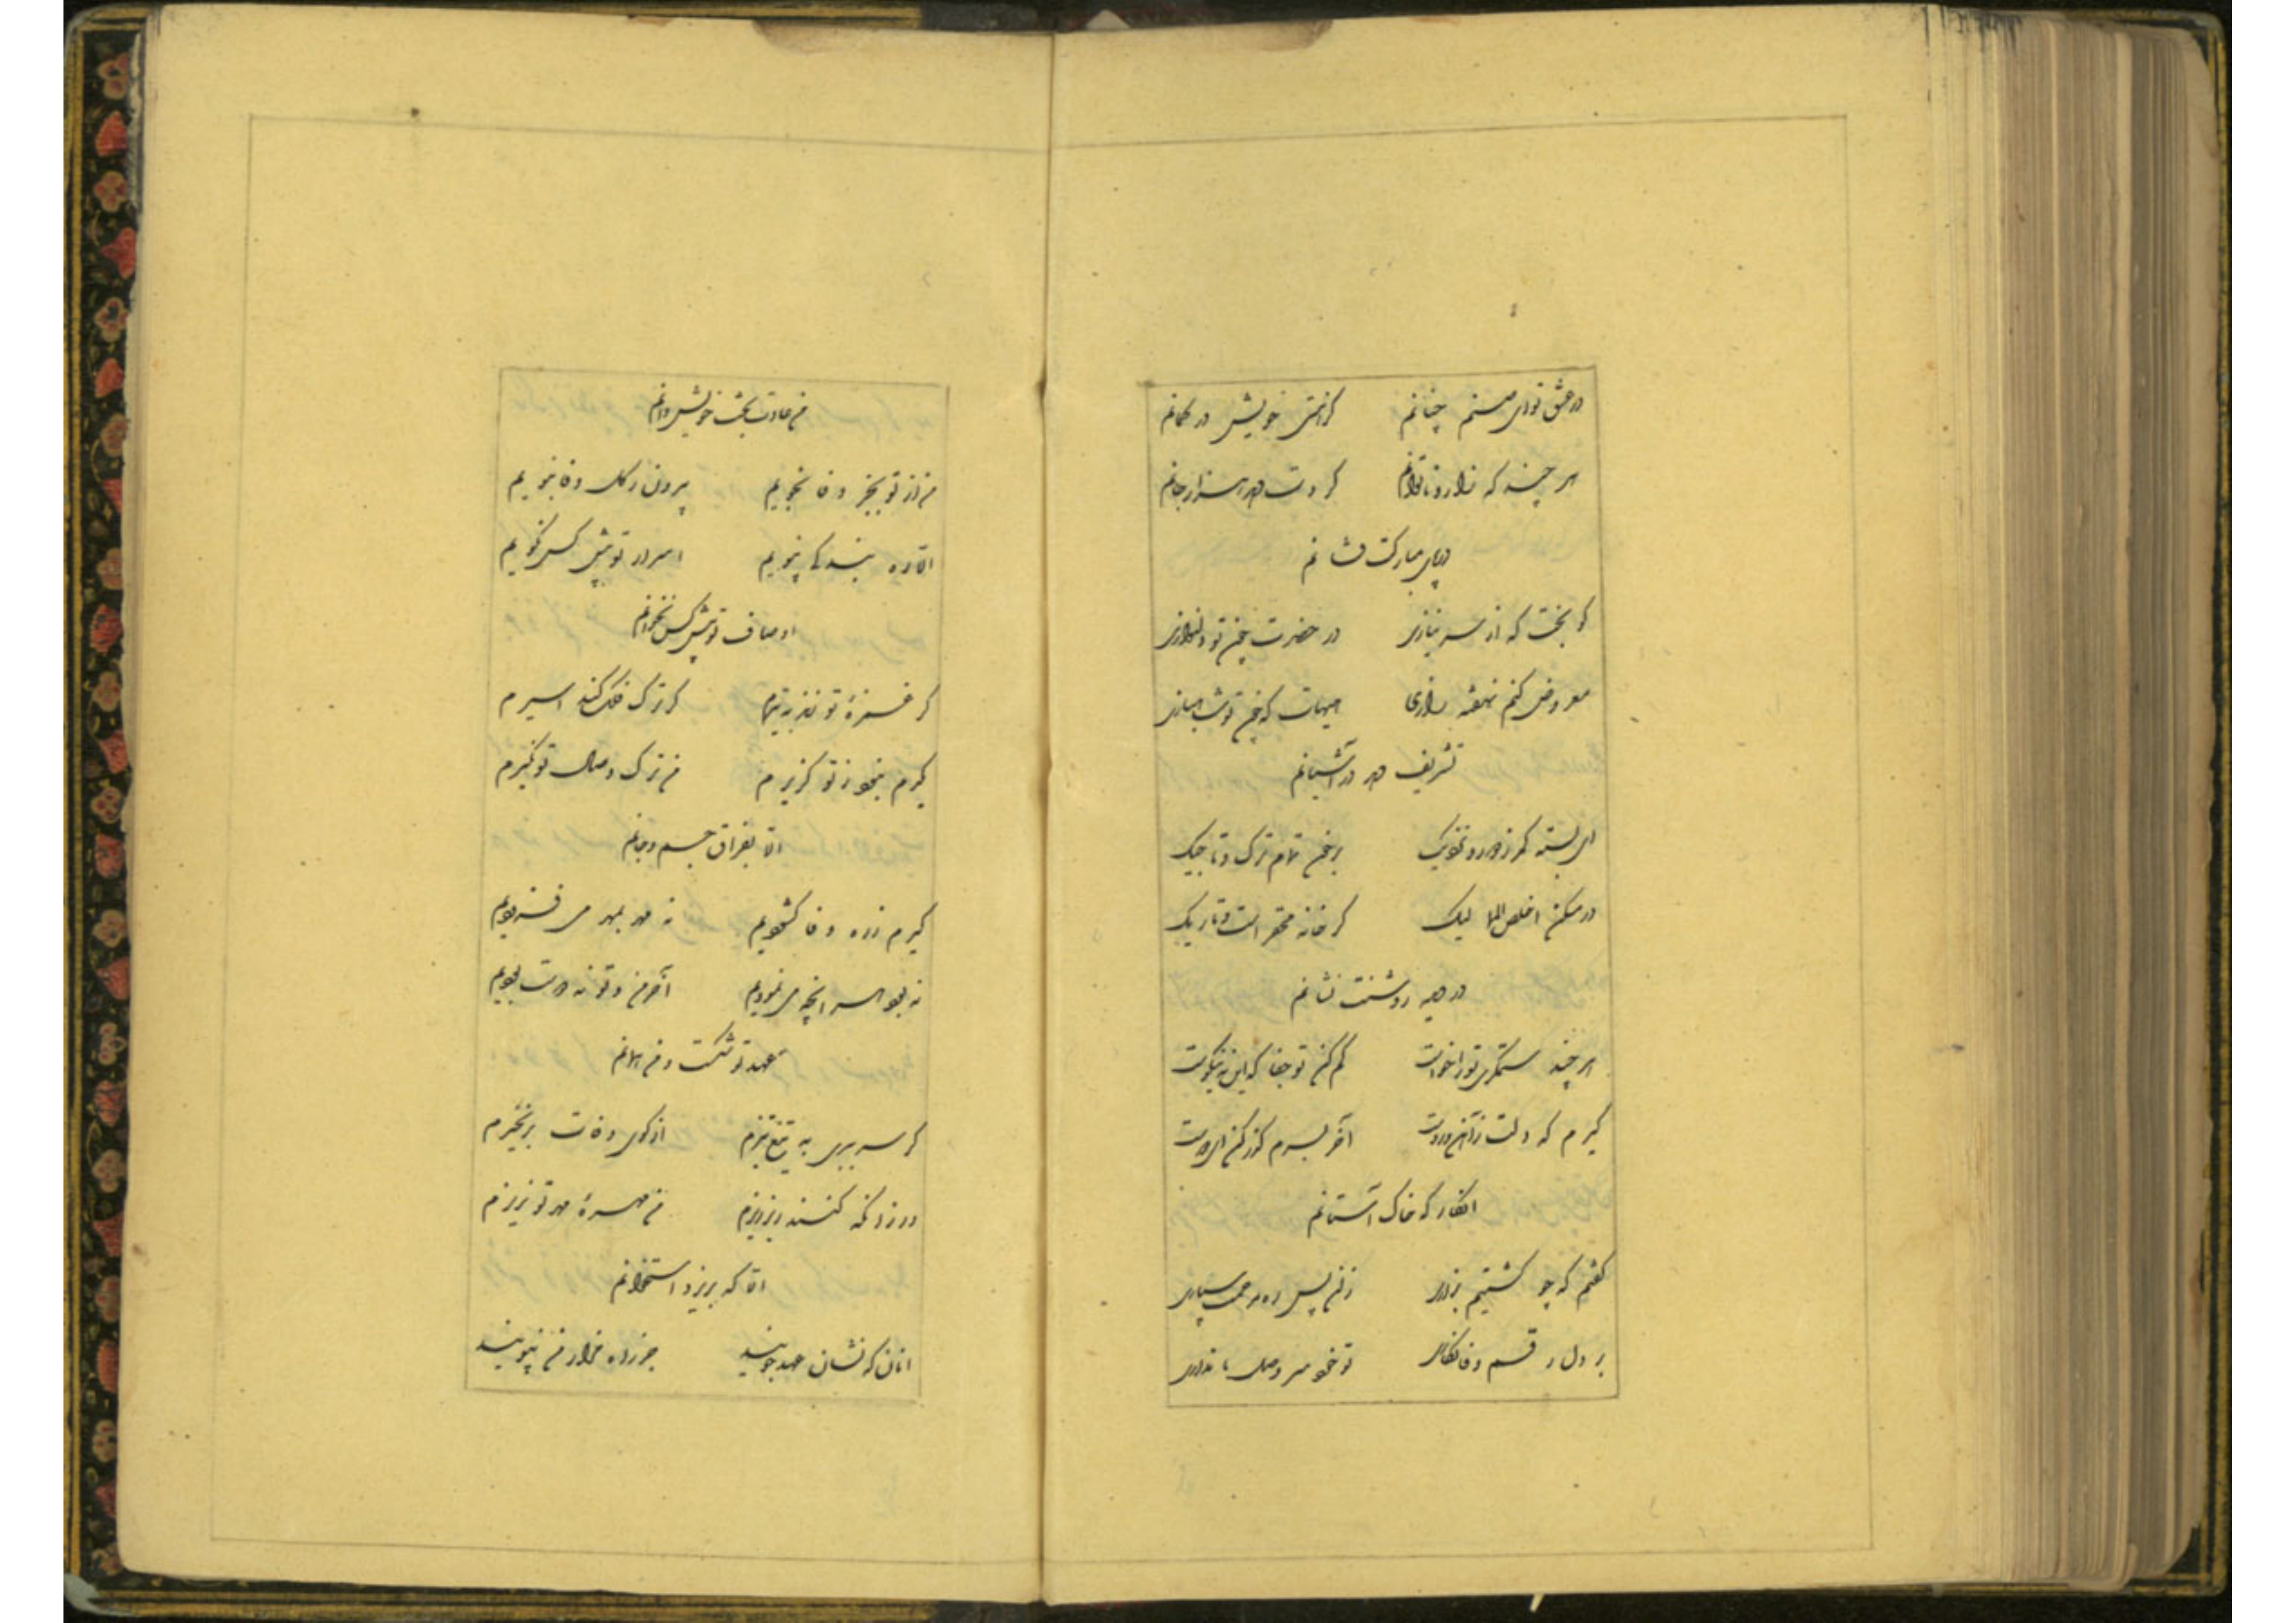 در عشق تو ای صنم چنانم کز هستی خویش در گمانم
هر چند که زار و ناتوانم گر دست دهد هزار جانم
در پای مبارکت فشانم
کو بخت که از سر نیازی در حضرت چون تو دلنوازی
معروض کنم نهفته رازی هیهات که چون تو شاهبازی
تشریف دهد در آشیانم
ای بسته کمر ز دور و نزدیک بر خون تمام ترک و تاجیک
در مسکن اخلص الممالیک گر خانه محقر است و تاریک
در دیده روشنت نشانم
هر چند ستمگری تو را خوست کم کن تو جفا که این نه نیکوست
گیرم که دلت ز آهن و روست آخر بسرم گذر کن ای دوست
انگار که خاک آستانم
گفتم که چو کشتیم بزاری زین پس ره مرحمت سپاری
بر دل رقم وفا نگاری تو خود سر وصل ما نداری
من عادت بخت خویش دانم
من از تو بجز وفا نجویم بیرون ز گل وفا نبویم
الا ره بندگی نپویم اسرار تو پیش کس نگویم
اوصاف تو پیش کس نخوانم
گر غمزه تو زند به تیرم گر ترک فلک کند اسیرم
گیرم نبود ز تو گزیرم من ترک وصال تو نگیرم
الا بفراق جسم و جانم
گیرم ز ره وفا گشودیم نه مهر بمهر می فزودیم
نه بود هر آنچه می نمودیم آخر من و تو نه دوست بودیم
عهد تو شکست و من همانم
گر سر ببری به تیغ تیزم از کوی وفات برنخیزم
ور زانکه کنند ریز ریزم من مهره مهر تو نریزم
الا که بریزد استخوانم
آنان که نشان عهد جویند جز راه مزار من نپویند